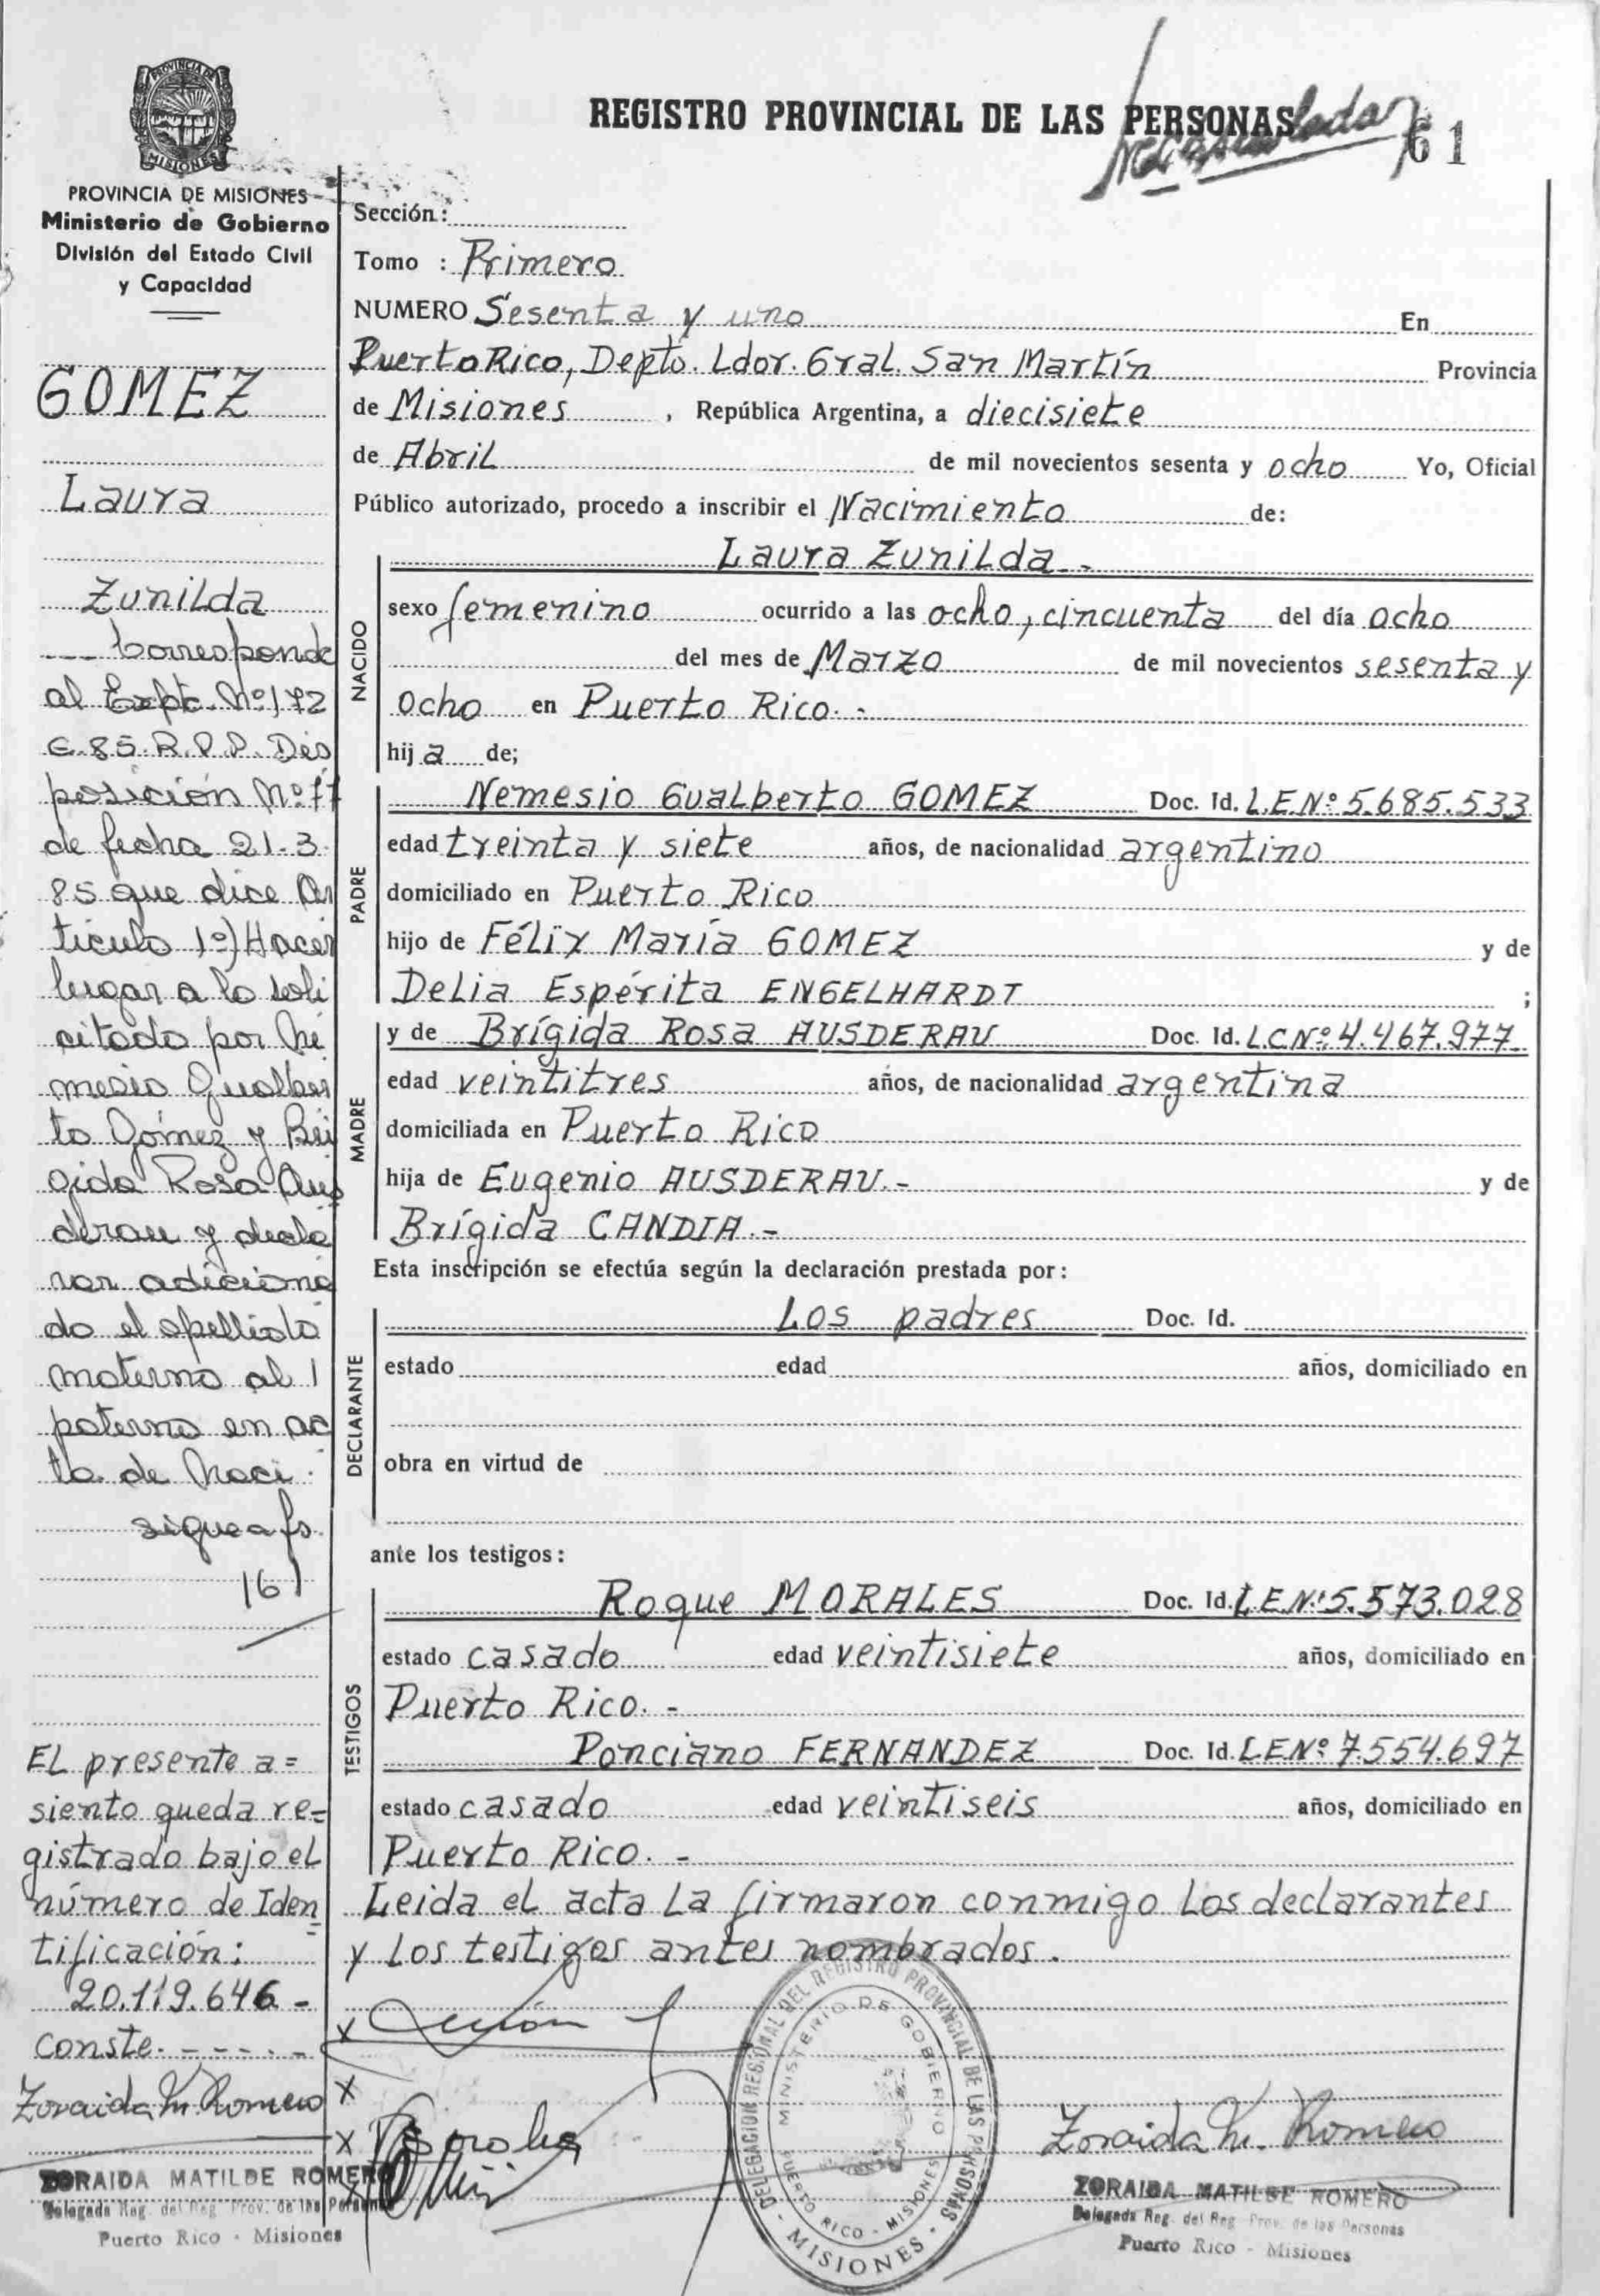 REGISTRO PROVINCIAL DE LAS PERSONAS
61
PROVINCIA DE MISIONES
PROVINCIA DE MISIONES
Ministerio de Gobierno
División del Estado Civil
y Capacidad
GOMEZ
Laura
Zunilda
Corresponde
al Expte. Nº 172
G.85.R.P.P. Dis
posición Nº 77
de fecha 21-3-
85 que dice Ar
tículo 1º) Hacer
lugar a lo soli
citado por Ne
mesio Gualber
to Gómez y Brí
gida Rosa Aus
derau y decla
rar adiciona
do el apellido
materno al
paterno en ac
ta de naci
sigue a fs.
161
EL presente a=
siento queda re=
gistrado bajo el
número de Iden=
tificación:
20.119.646 -
conste. - - - - -
Zoraida M. Romero
ZORAIDA MATILDE ROMERO
Delegada Reg. del Reg. Prov. de las Personas
Puerto Rico - Misiones
Sección:
Tomo : Primero
NUMERO Sesenta y uno En
Puerto Rico, Depto. Ldor. Gral. San Martín Provincia
de Misiones , República Argentina, a diecisiete
de Abril de mil novecientos sesenta y ocho Yo, Oficial
Público autorizado, procedo a inscribir el Nacimiento de:
NACIDO
Laura Zunilda.-
sexo femenino ocurrido a las ocho, cincuenta del día ocho
del mes de Marzo de mil novecientos sesenta y
ocho en Puerto Rico.-
hija de;
PADRE
Nemesio Gualberto GOMEZ Doc. Id. L.E.Nº 5.685.533
edad treinta y siete años, de nacionalidad argentino
domiciliado en Puerto Rico
hijo de Félix María GOMEZ y de
Delia Espérita ENGELHARDT ;
MADRE
y de Brígida Rosa AUSDERAU Doc. Id. L.C.Nº 4.467.977
edad veintitres años, de nacionalidad argentina
domiciliada en Puerto Rico
hija de Eugenio AUSDERAU.- y de
Brígida CANDIA.-
Esta inscripción se efectúa según la declaración prestada por:
DECLARANTE
Los padres Doc. Id.
estado edad años, domiciliado en
obra en virtud de
ante los testigos:
TESTIGOS
Roque MORALES Doc. Id. L.E.Nº 5.573.028
estado casado edad veintisiete años, domiciliado en
Puerto Rico.-
Ponciano FERNANDEZ Doc. Id. L.E.Nº 7.554.697
estado casado edad veintiseis años, domiciliado en
Puerto Rico.-
Leida el acta la firmaron conmigo los declarantes
y los testigos antes nombrados.
DELEGACION REGIONAL DEL REGISTRO PROVINCIAL DE LAS PERSONAS
MINISTERIO DE GOBIERNO
PUERTO RICO - MISIONES
- MISIONES -
Zoraida M. Romero
ZORAIDA MATILDE ROMERO
Delegada Reg. del Reg. Prov. de las Personas
Puerto Rico - Misiones